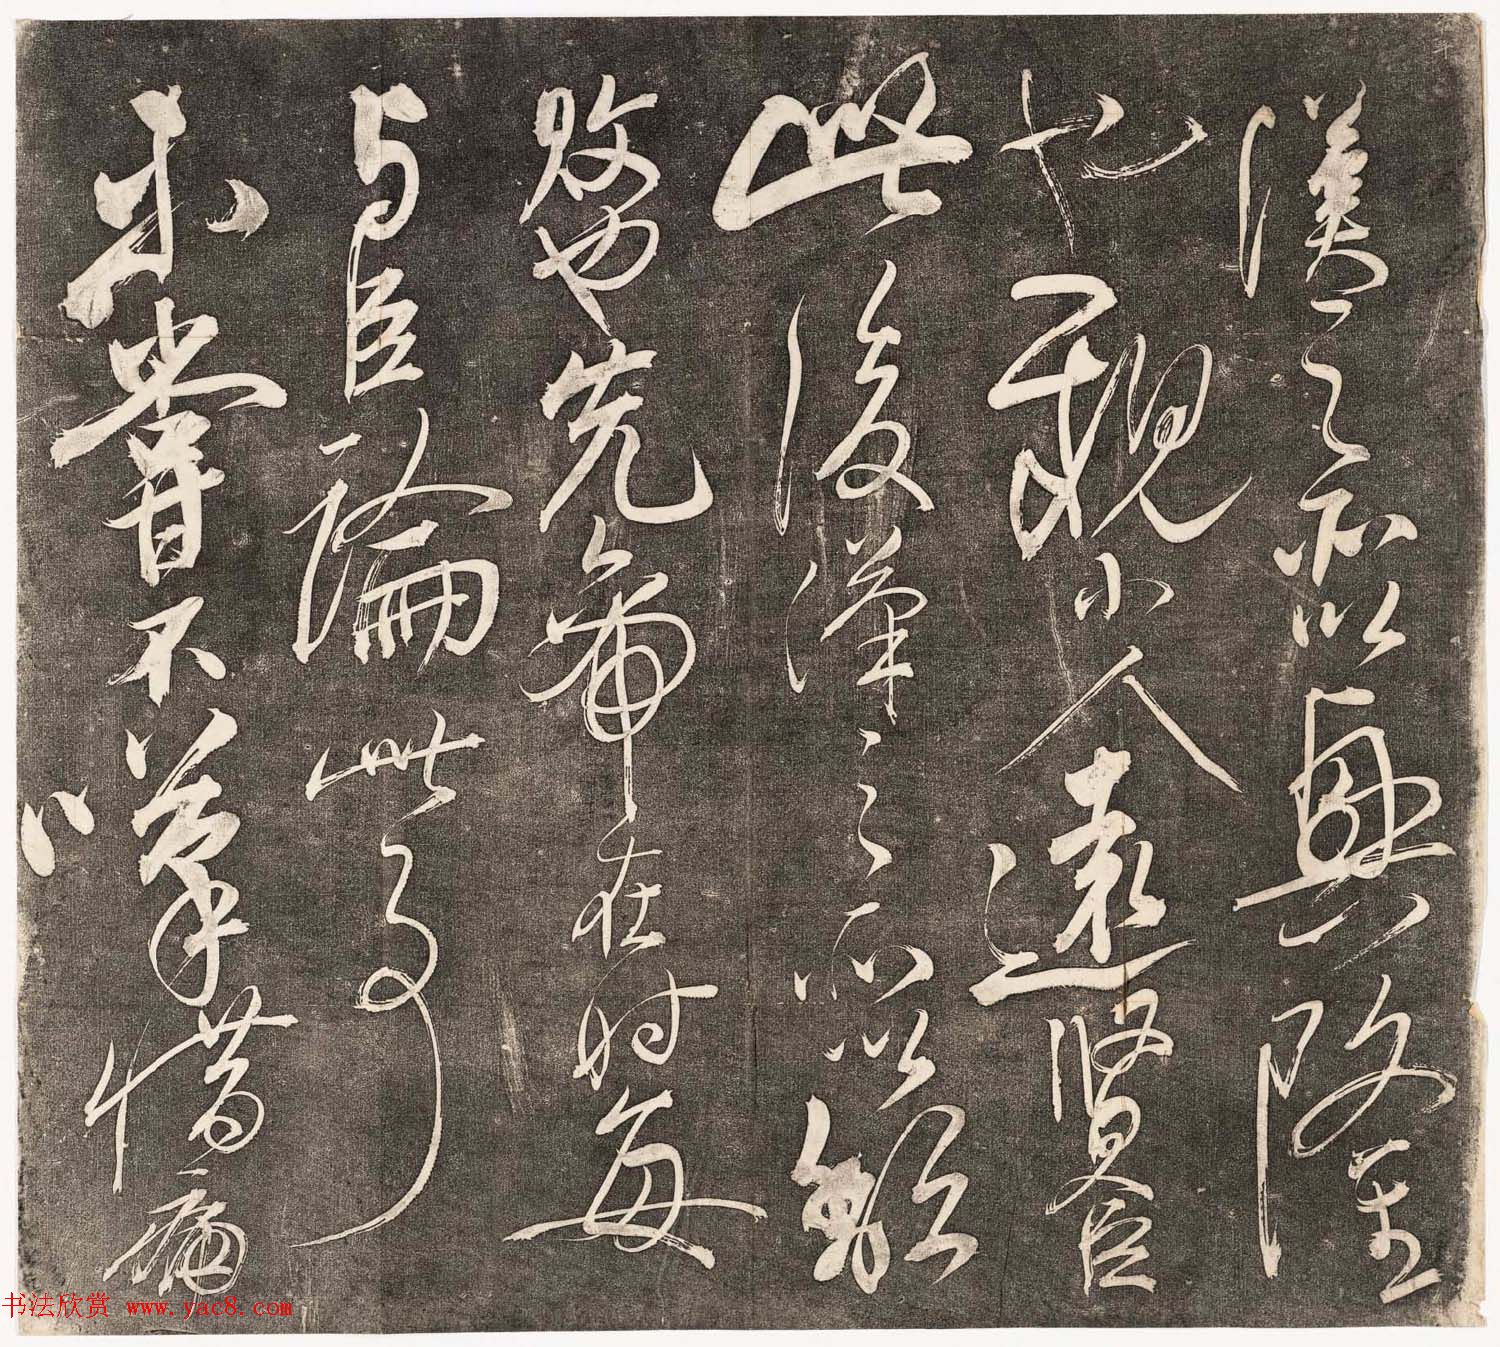 漢之所以興隆
也親小人遠賢臣
此後漢之所以頹
敗也先帝在時每
与臣論此事
未嘗不嘆惜痛
书法欣赏 www.yac8.com